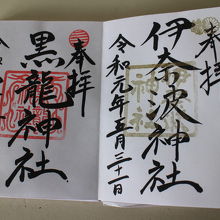 奉拝
伊奈波神社
令和元年五月三十一日
奉拝
黒龍神社
令和